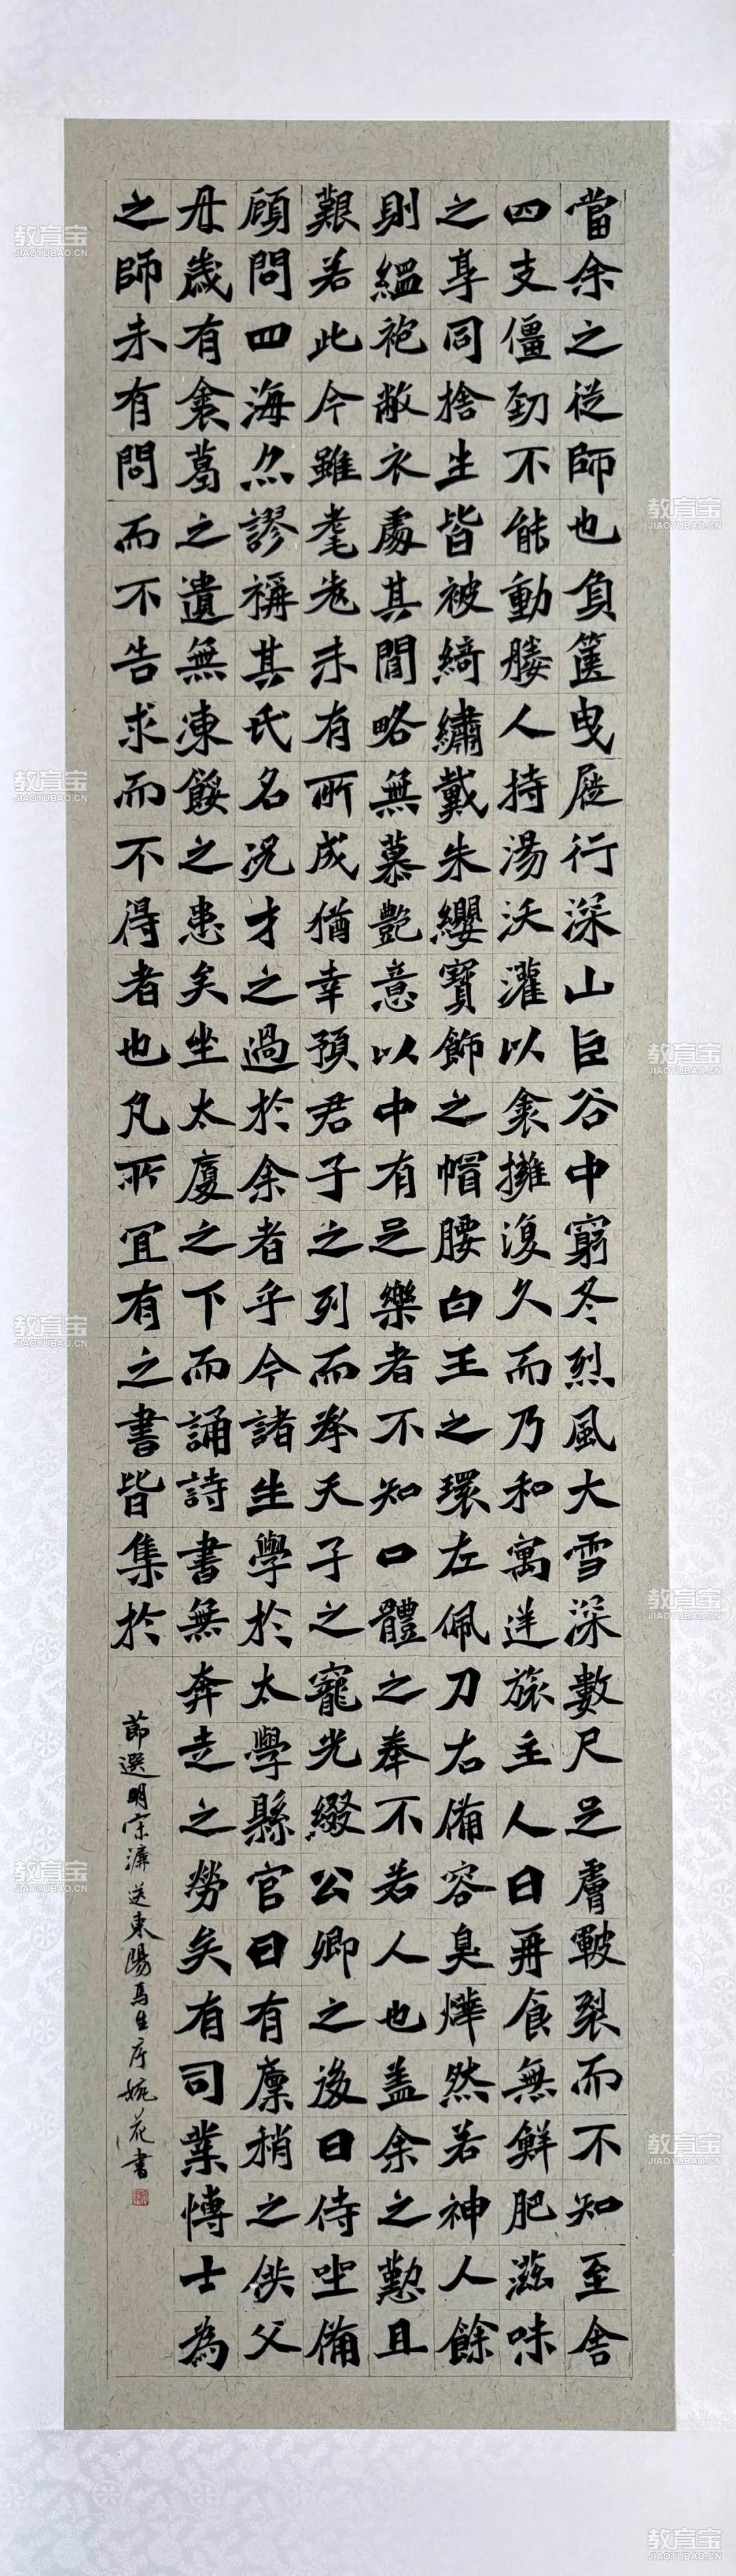 當余之從師也負篋曳屣行深山巨谷中窮冬烈風大雪深數尺足膚皸裂而不知至舍
四支僵勁不能動媵人持湯沃灌以衾擁復久而乃和寓逆旅主人日再食無鮮肥滋味
之享同捨生皆被綺繡戴朱纓寶飾之帽腰白王之環左佩刀右備容臭燁然若神人餘
則縕袍敝衣處其間略無慕艷意以中有足樂者不知口體之奉不若人也盖余之勤且
艱若此今雖耄老未有所成猶幸預君子之列而承天子之寵光綴公卿之後日侍坐備
顧問四海亦謬稱其氏名况才之過於余者乎今諸生學於太學縣官日有廩稍之供父
母歲有裘葛之遺無凍餒之患矣坐太廈之下而誦詩書無奔走之勞矣有司業博士為
之師未有問而不告求而不得者也凡所宜有之書皆集於
節選明宋濂送東陽馬生序婉花書
教育宝
JIAOYUBAO.CN